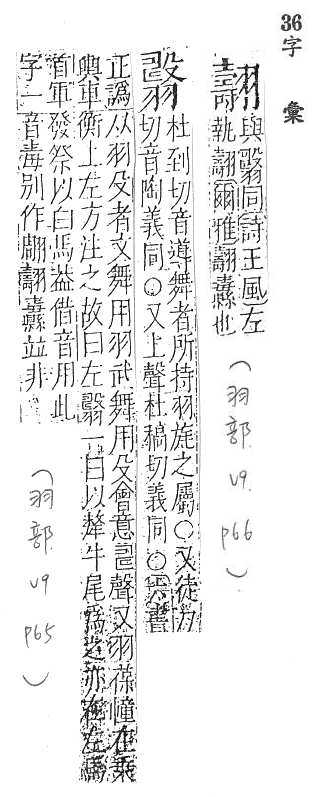 36
字彙
翿與翳同詩王風左
執翿爾雅翿纛也
（羽部 v9 p66）
杜到切音導舞者所持羽旄之屬○又徒刀
切音陶義同○又上聲杜稿切義同○
正譌从羽殳者文舞用羽武舞用殳會意聲又羽葆幢在乘
輿車衡上左方注之故曰左一曰以犛牛尾爲之亦在左
首軍發祭以白馬益借音用此
字一音毒別作翿纛並非
（羽部 v9 p65）